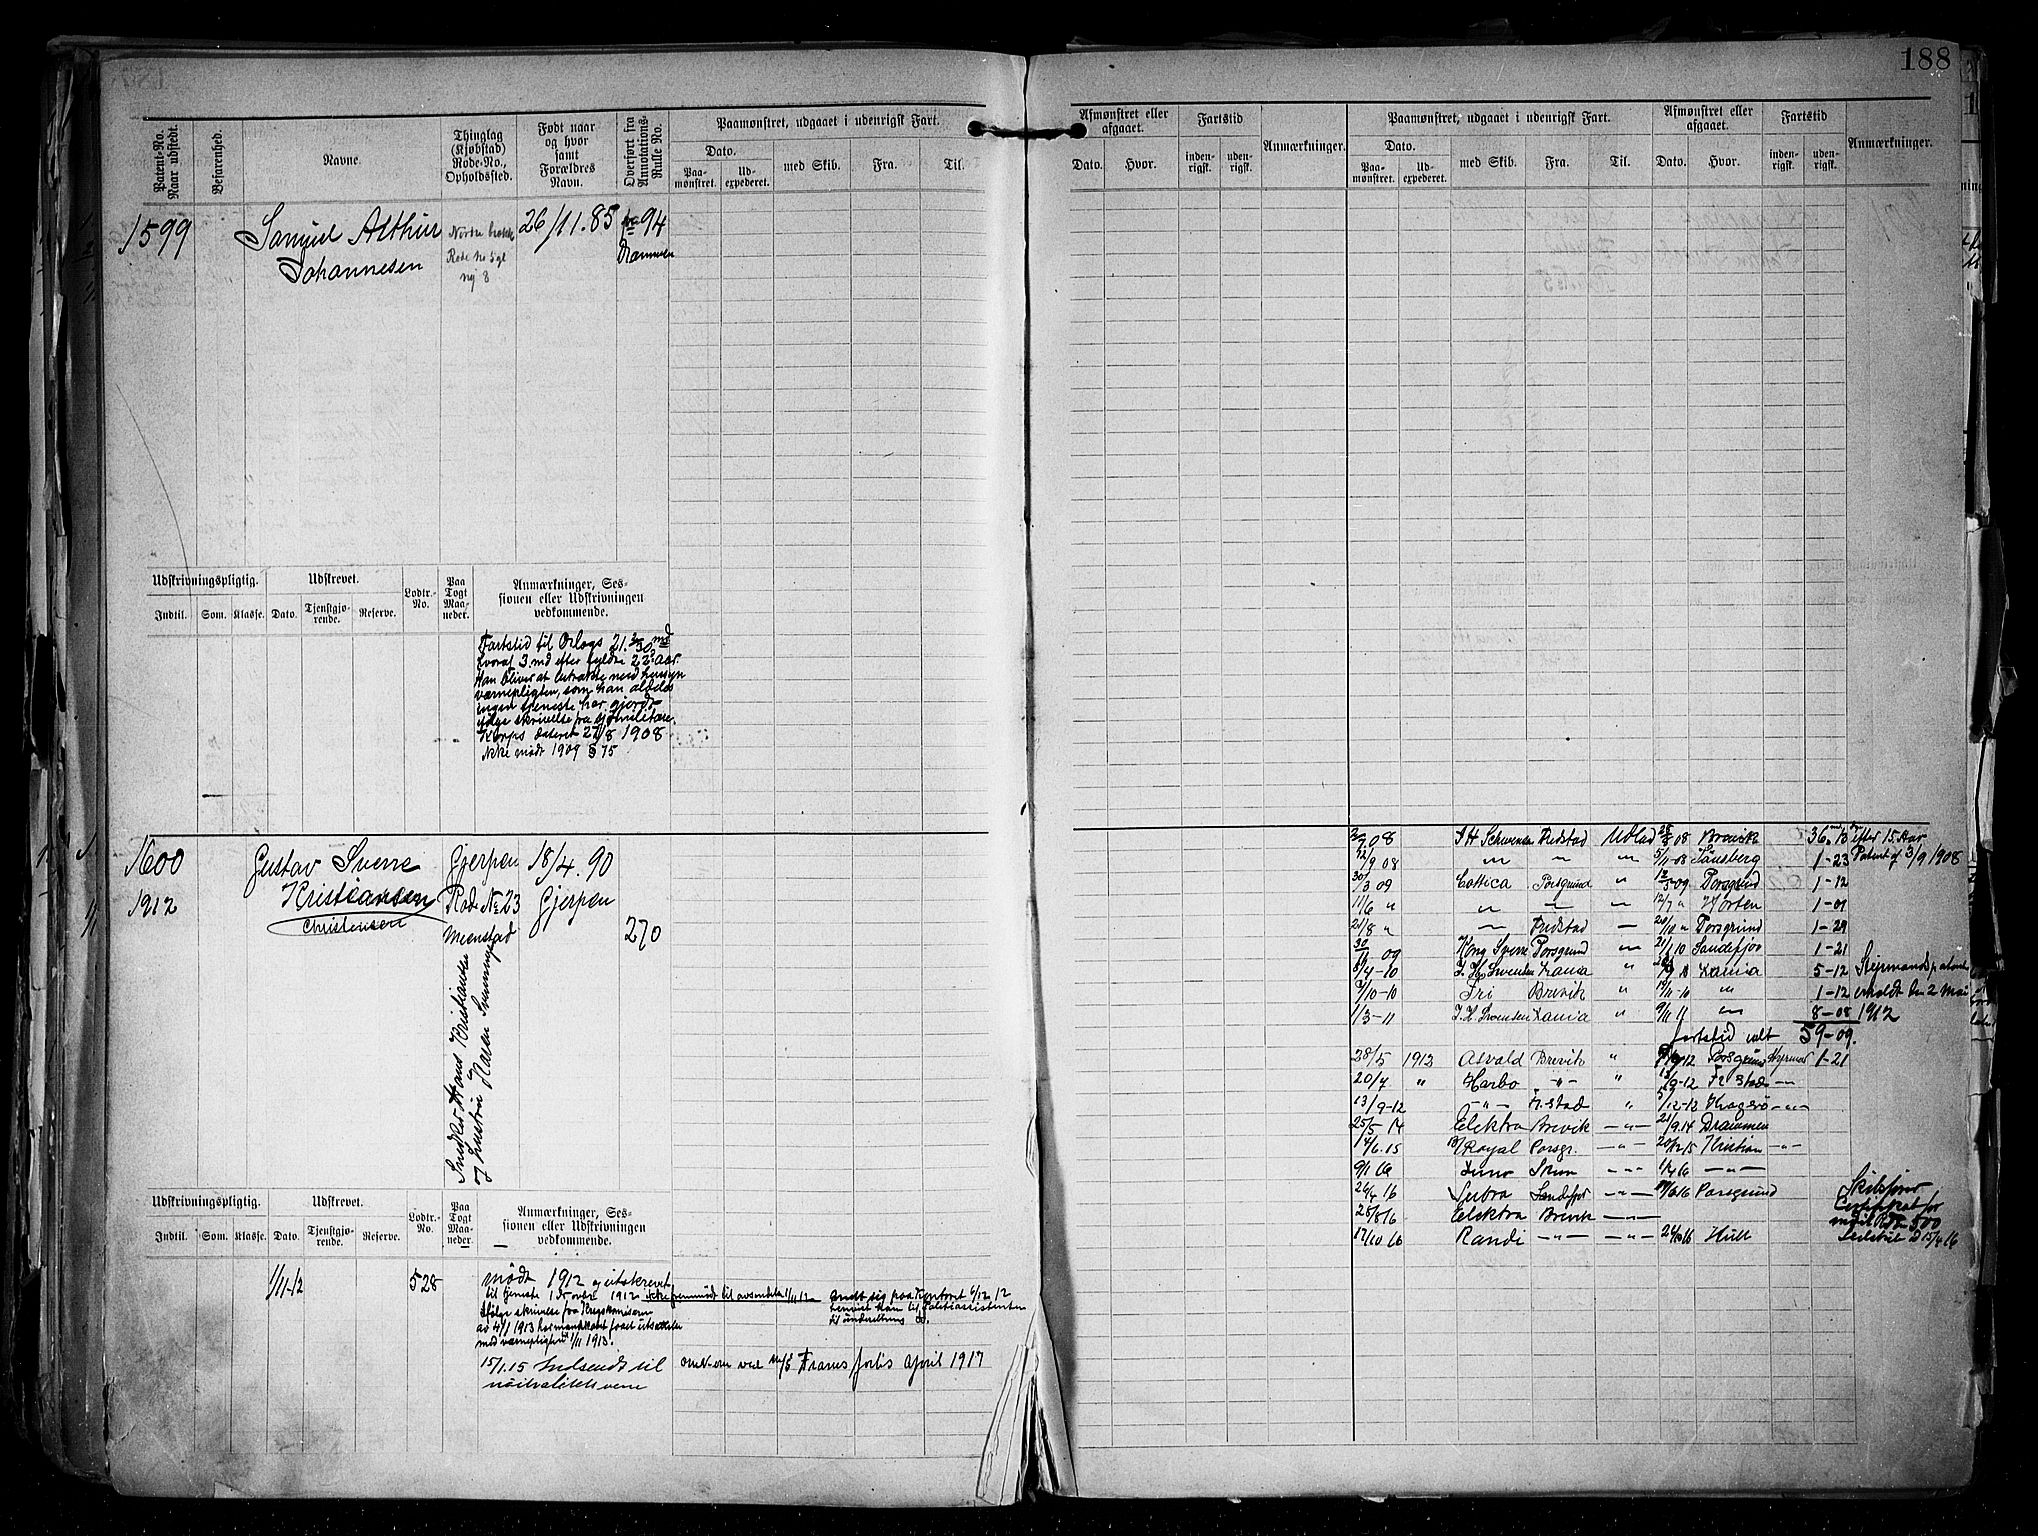 188
Patent-No. Naar udstedt.
Befarenhed.
Navne.
Thinglag (Kjøbstad) Rode-No., Opholdssted.
Født naar og hvor samt Forældres Navn.
Overført fra Annotations-Rulle No.
Paamønstret, udgaaet i udenrigsk Fart.
Dato.
Paamønstret.
Udexpederet.
med Skib.
Fra.
Til.
Afmønstret eller afgaaet.
Dato.
Hvor.
Fartstid
indenrigsk.
udenrigsk.
Anmærkninger.
Paamønstret, udgaaet i udenrigsk Fart.
Dato.
Paamønstret.
Udexpederet.
med Skib.
Fra.
Til.
Afmønstret eller afgaaet.
Dato.
Hvor.
Fartstid
indenrigsk.
udenrigsk.
Anmærkninger.
1599
Samuel Arthur
Johannesen
Rode No
26/11.85
94
Drammen
Udskrivningspligtig.
Indtil.
Som.
Klasse.
Udskrevet.
Dato.
Tjenstgjørende.
Reserve.
Lodtr.-No.
Paa Togt Maaneder.
Anmærkninger, Sessionen eller Udskrivningen vedkommende.
Fartstid til Orlogs 21. md
hvoraf 3 md efter fyldte 22 aar.
Han bliver at betragte med hensyn
værnepligten, som han aldeles
ingen tjeneste har gjordt
ifølge skrivelse fra sjømilitære
Korps dateret 27/8 1908
ikke mødt 1909 § 75
1600
1912
Gustav Sverre
Kristiansen
Christensen
Gjerpen
Rode No 23
Menstad
18/4.90
Gjerpen
270
Snedker Hans Kristiansen
og hustru Karen
Udskrivningspligtig.
Indtil.
Som.
Klasse.
Udskrevet.
Dato.
Tjenstgjørende.
Reserve.
Lodtr.-No.
Paa Togt Maaneder.
Anmærkninger, Sessionen eller Udskrivningen vedkommende.
1/11-12
528
mødt 1912 og utskrevet
til tjeneste 1912 ikke fremmødt til avsendelse 1/11 12
meldt sig paa kontoret 6/12 12
ifølge skrivelse fra
av 4/1 1913 har faaet utsættelse
med værnepligten 1/11 1913.
15/1.15 Indsendt til
nøitralitetsvern
ved Frams forlis April 1917
08 Fredstad Udlad 08 Brevik 36. 13 efter 15. Aar
9 08 " " " 5/11-08 Tønsberg 1-23 Patent af 3/9 1908
30/3 09 Cottica Porsgrund " 09 Porsgrund 1-12
11/6 " " — " 12/7 " Horten 1-01
21/8 " — Fredstad — 20/10 " Porsgrund 1-29
30/11 09 Kong Sverre Porsgrund " 21/1 10 Sandefjor 1-21
8/4-10 Larvia " Larvia 5-12 Styrmandspatent
7/10-10 Fri Brevik " 19/11-10 " 1-12 erholdt den 2 Mai
1/3-11 J. H. Svensen Larvia " 9/11 11 — 8-08 1912
fartstid ialt 59-09.
28/5 1913 Asvald Brevik " 12 Porsgrund Styrmand 1-21
20/7 " Harbo -"- " 13/9-12 Fr. Stad —
13/9-12 -"- Fr. stad " 5/12-12 Kragerø -"-
25/5 14 Elektra Brevik -"- 21/9.14 Drammen
14/6.15 Royal Porsgr. -"- 20/12 15 Kristian -"-
9/1 16 Juno Skien -"- 1/4 16 -"-
26/4 16 Sandefjor -"- 6 16 Porsgrund
25/8 16 Elektra Brevik -"-
12/10 16 Randi -"- -"- 24/10 16 Hull
Skibsfører
Certifikat for
500
15/4 16